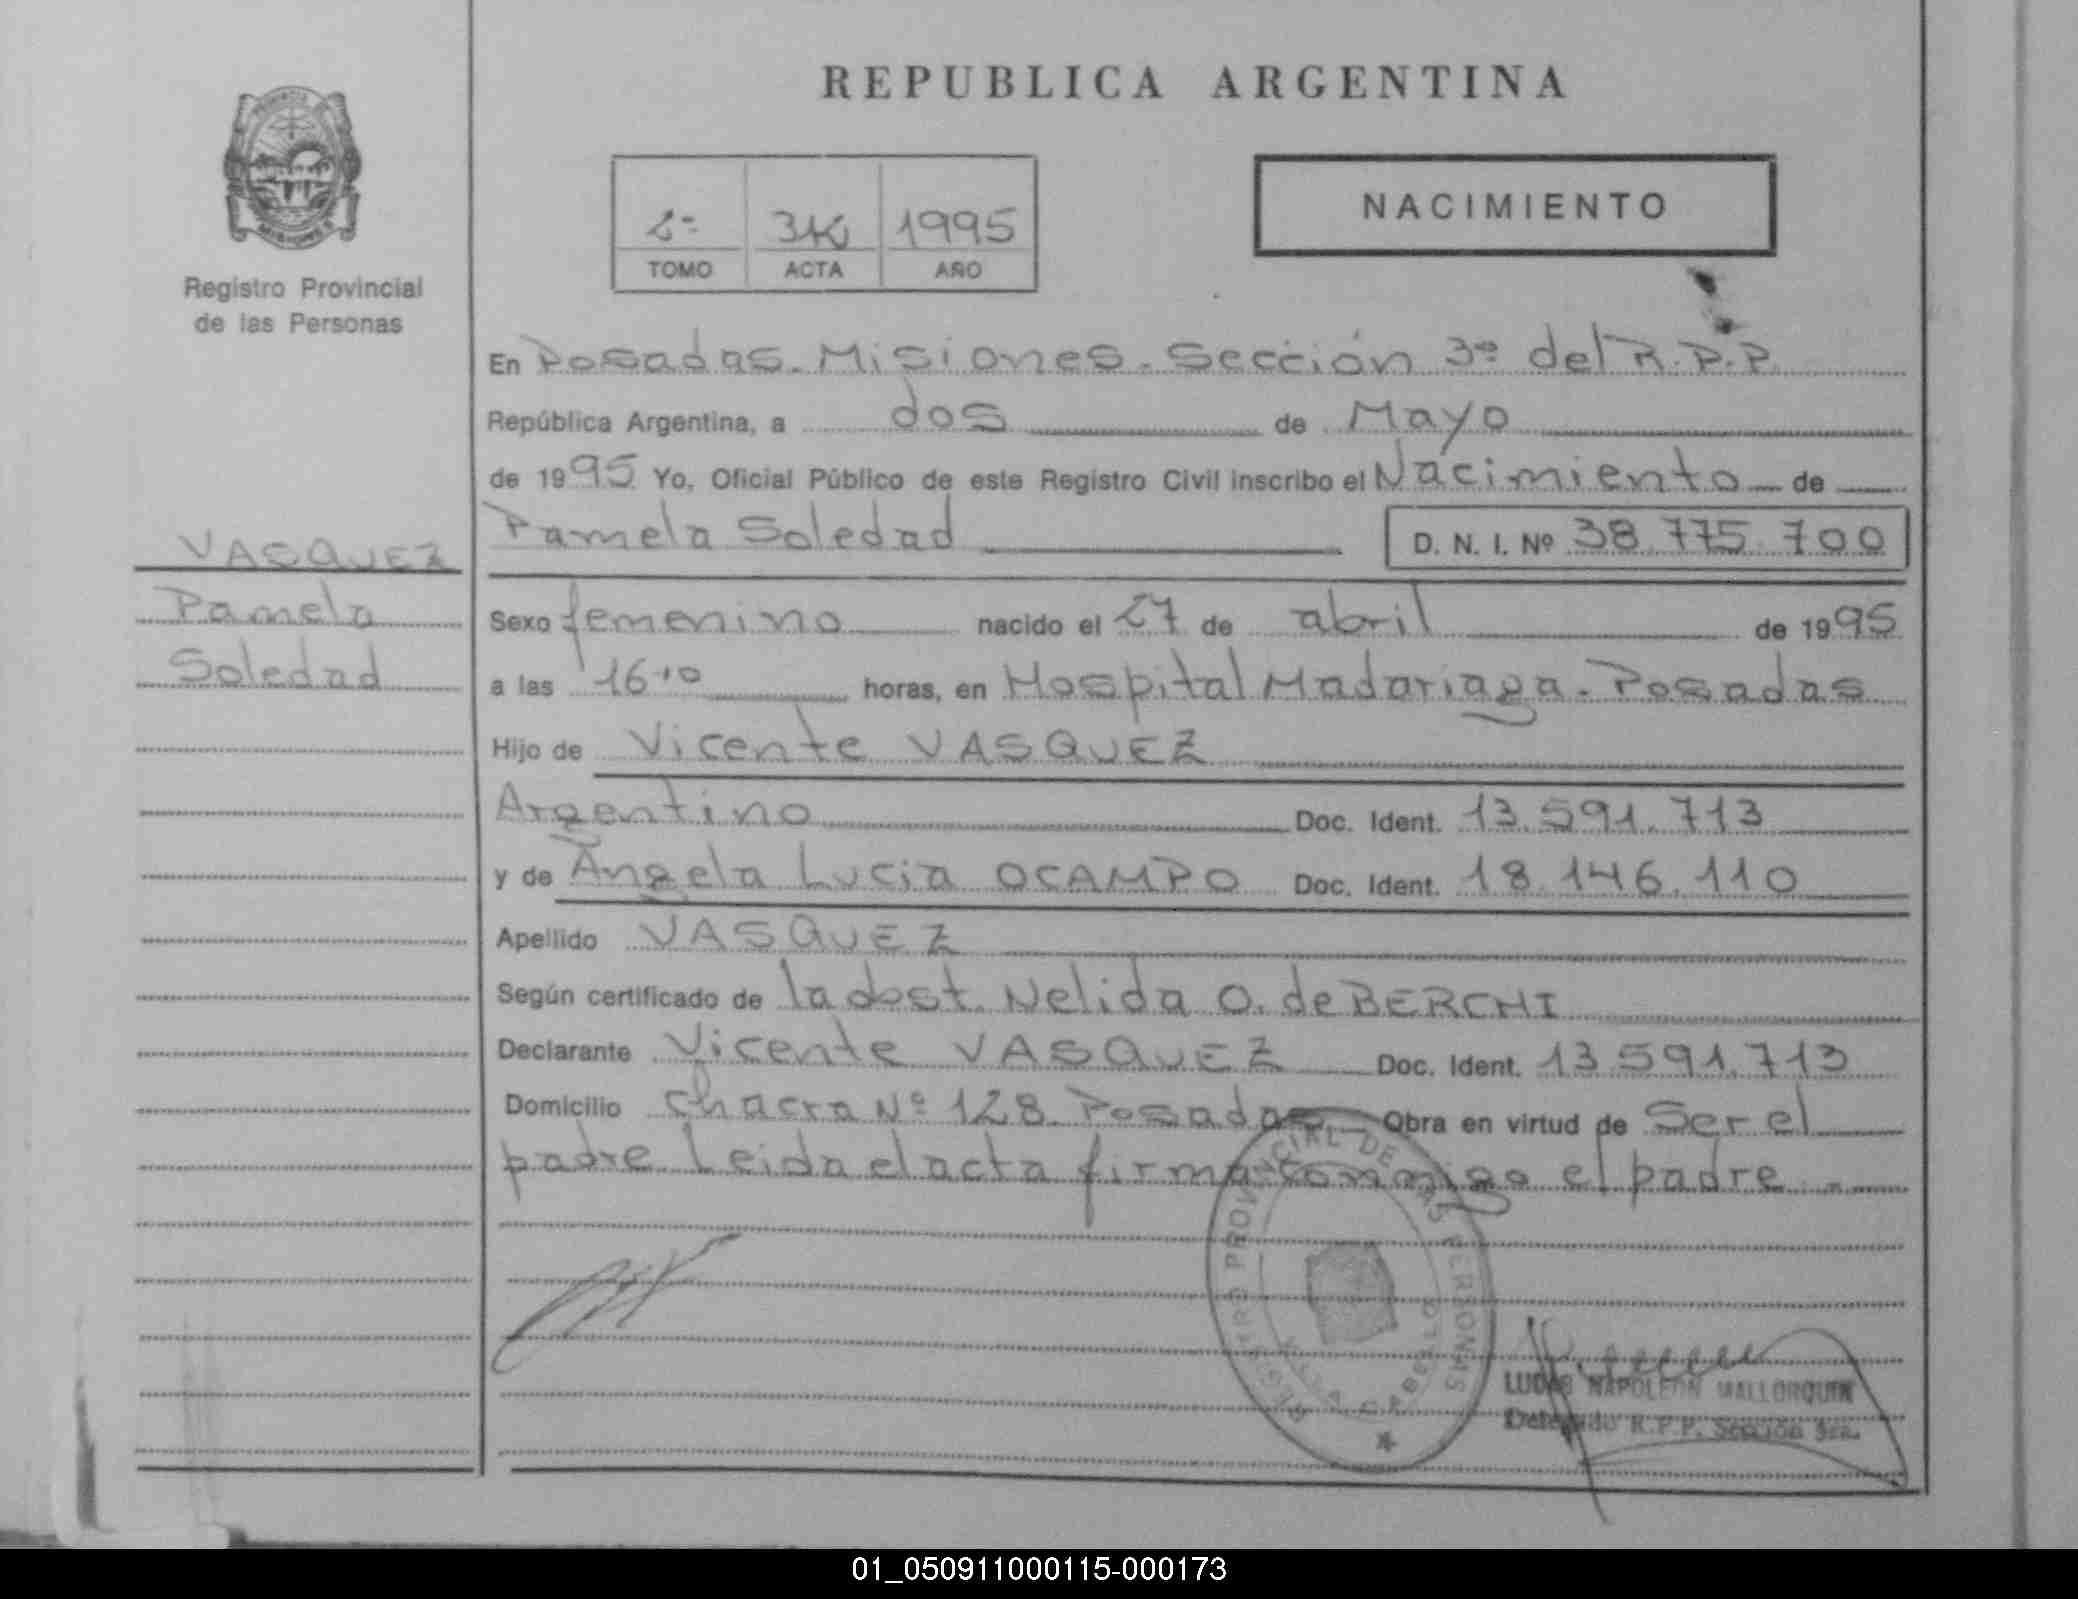 REPUBLICA ARGENTINA
NACIMIENTO
2º 1995
TOMO ACTA AÑO
MISIONES
Registro Provincial
de las Personas
En Posadas. Misiones. Sección 3º del R.P.P.
República Argentina, a dos de Mayo
de 1995 Yo, Oficial Público de este Registro Civil inscribo el Nacimiento de
Pamela Soledad D. N. I. Nº 38.775.700
VASQUEZ
Pamela
Soledad
Sexo femenino nacido el 27 de abril de 1995
a las 16·10 horas, en Hospital Madariaga. Posadas
Hijo de Vicente VASQUEZ
Argentino Doc. Ident. 13.591.713
y de Angela Lucia OCAMPO Doc. Ident. 18.146.110
Apellido VASQUEZ
Según certificado de la obst. Nelida O. de BERCHI
Declarante Vicente VASQUEZ Doc. Ident. 13.591.713
Domicilio Chacra Nº 128. Posadas Obra en virtud de Ser el
padre Leida el acta firma conmigo el padre
REGISTRO PROVINCIAL DE LAS PERSONAS
VILLA CABELLO
LUCAS NAPOLEON MALLORQUIN
Delegado R.P.P. Sección 3ra.
01_050911000115-000173